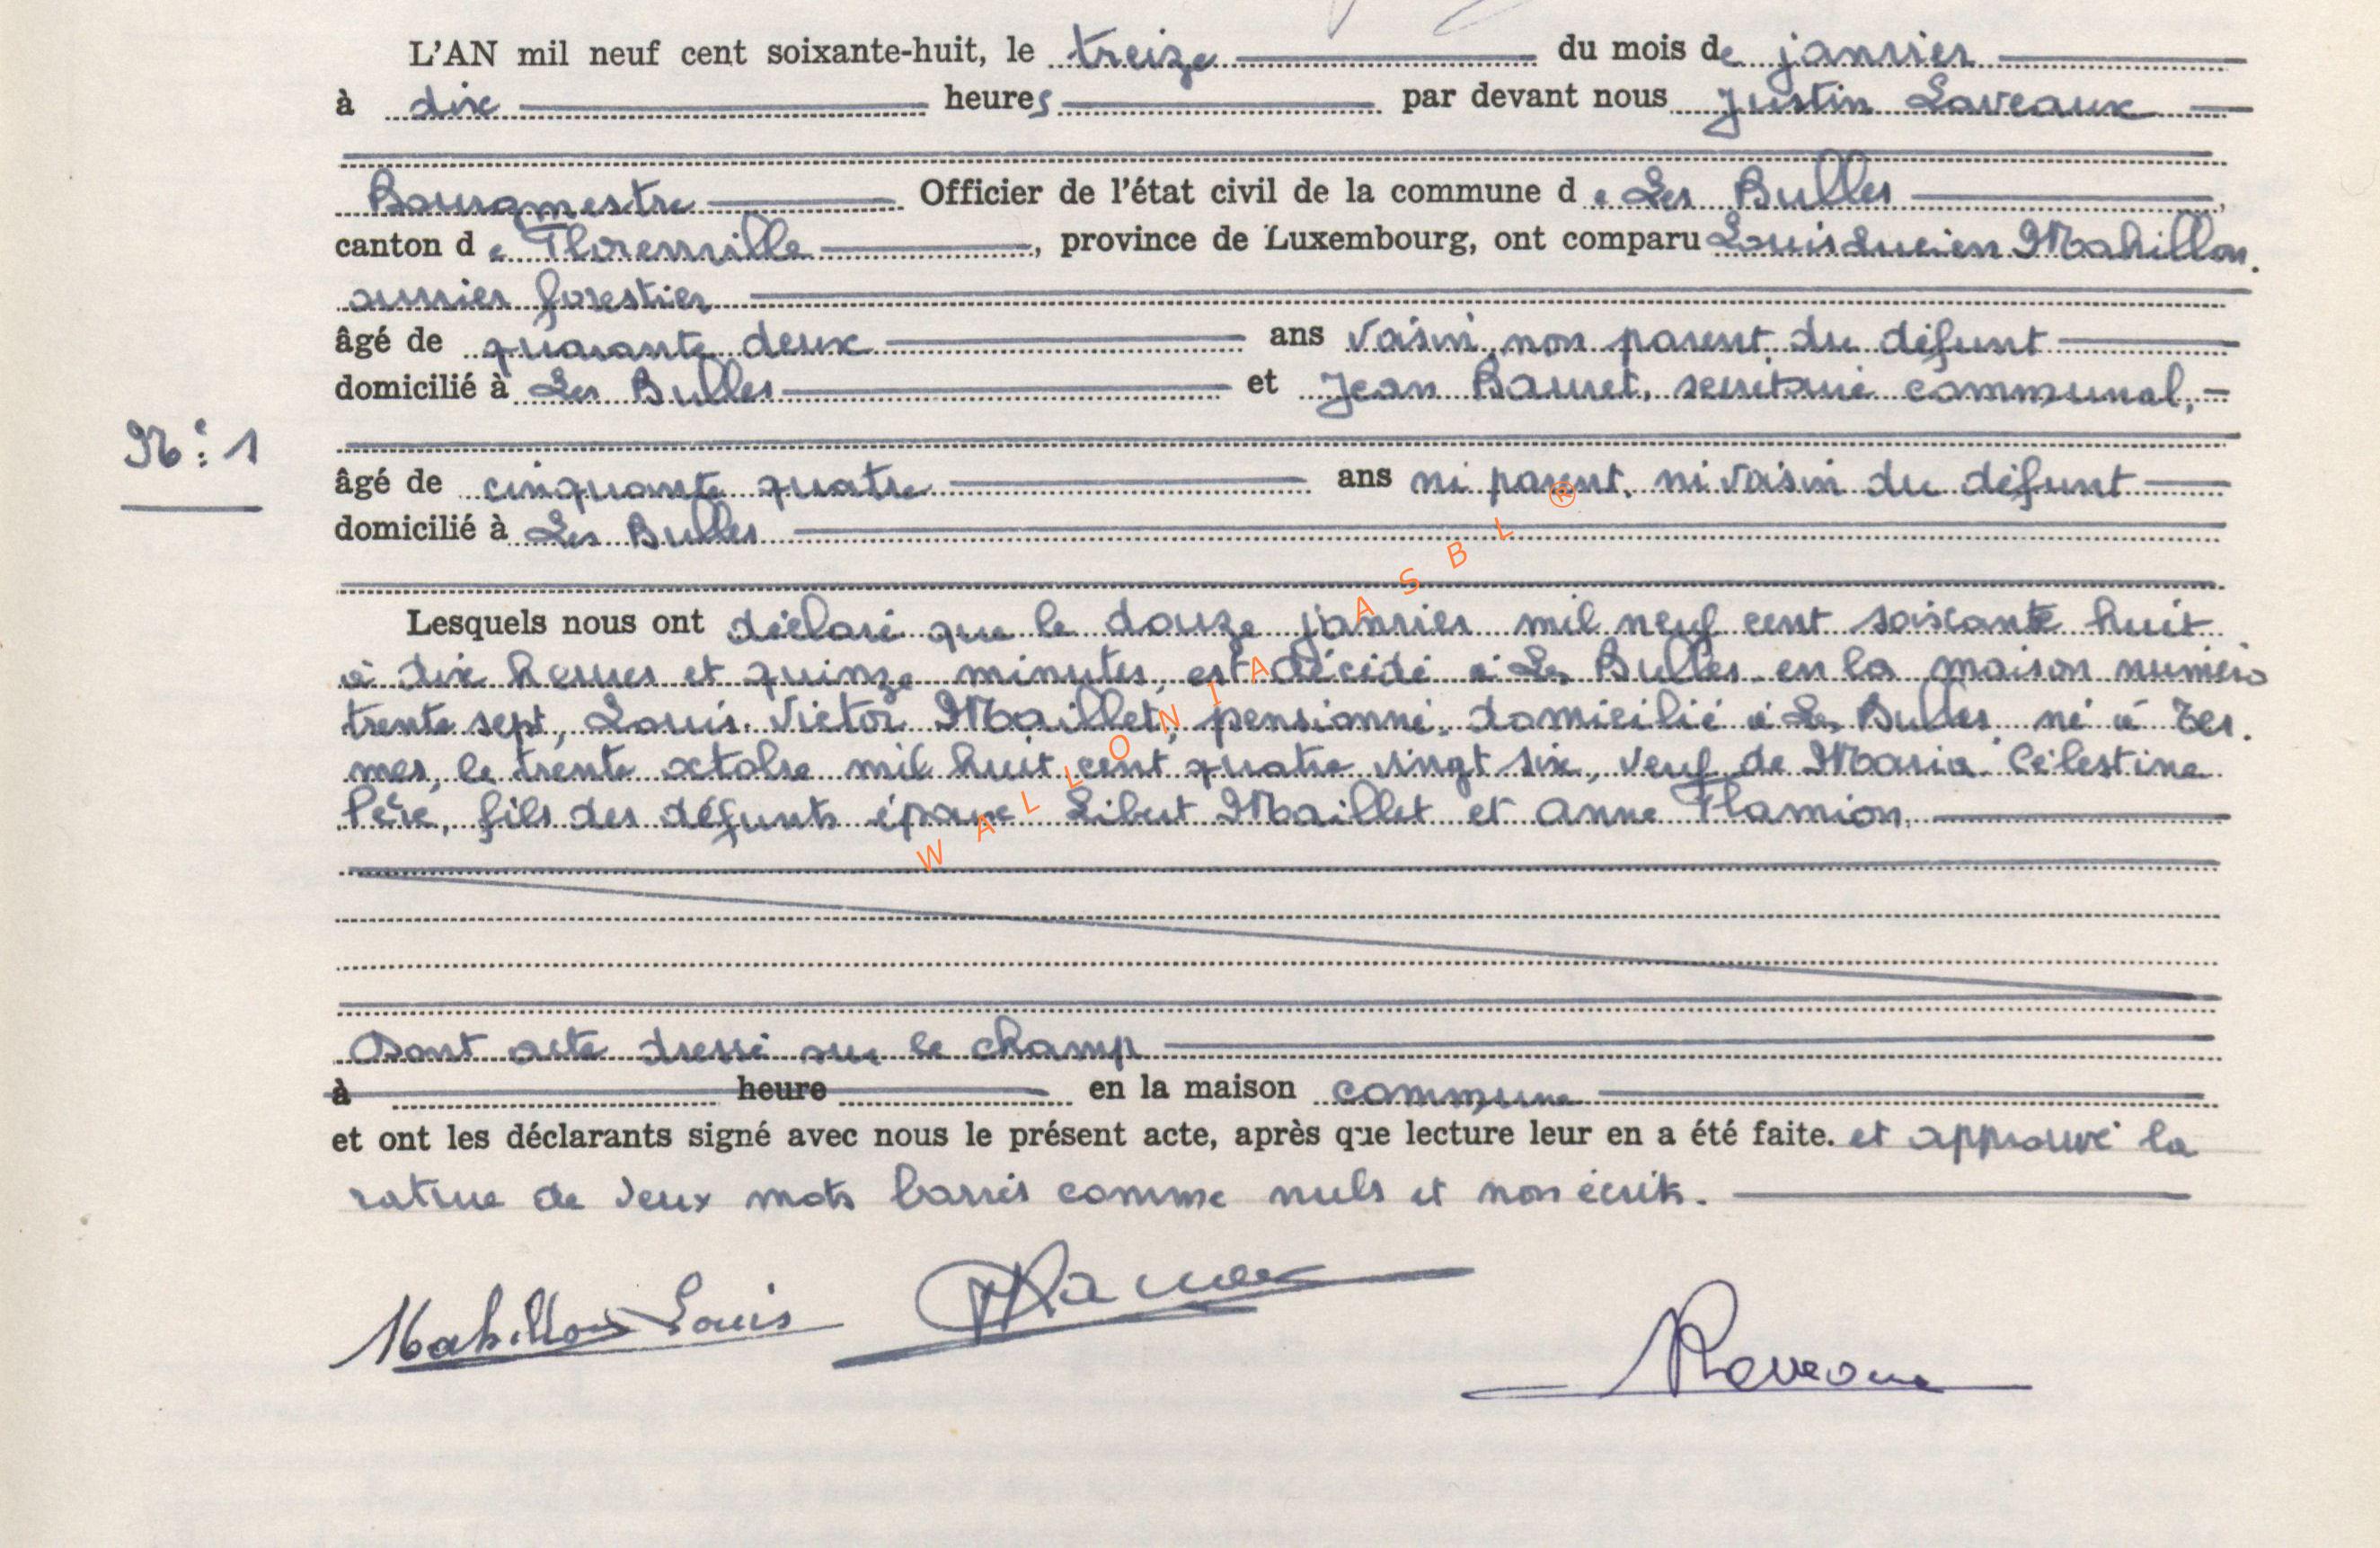 L'AN mil neuf cent soixante-huit, le treize du mois de janvier
à dix heures par devant nous Justin Laveaux
Bourgmestre Officier de l'état civil de la commune de Les Bulles,
canton de Florenville, province de Luxembourg, ont comparu Louis Lucien Mahillon.
ouvrier forestier
âgé de quarante deux ans voisin, non parent du défunt
domicilié à Les Bulles et Jean Bauret, secrétaire communal,
N° : 1
âgé de cinquante quatre ans ni parent, ni voisin du défunt
domicilié à Les Bulles
Lesquels nous ont déclaré que le douze janvier mil neuf cent soixante huit
à dix heures et quinze minutes, est décédé à Les Bulles en la maison numéro
trente sept, Louis Victor Maillet, pensionné, domicilié à Les Bulles né à Ter.
mes, le trente octobre mil huit cent quatre vingt six, veuf de Maria Célestine
Père, fils des défunts époux Libert Maillet et Anne Flamion.
WALLONIA ASBL ®
Dont acte dressé sur le champ
à heure en la maison commune
et ont les déclarants signé avec nous le présent acte, après que lecture leur en a été faite. et approuvé la
rature de deux mots barrés comme nuls et non écrits.
Mahillon Louis
Laveaux